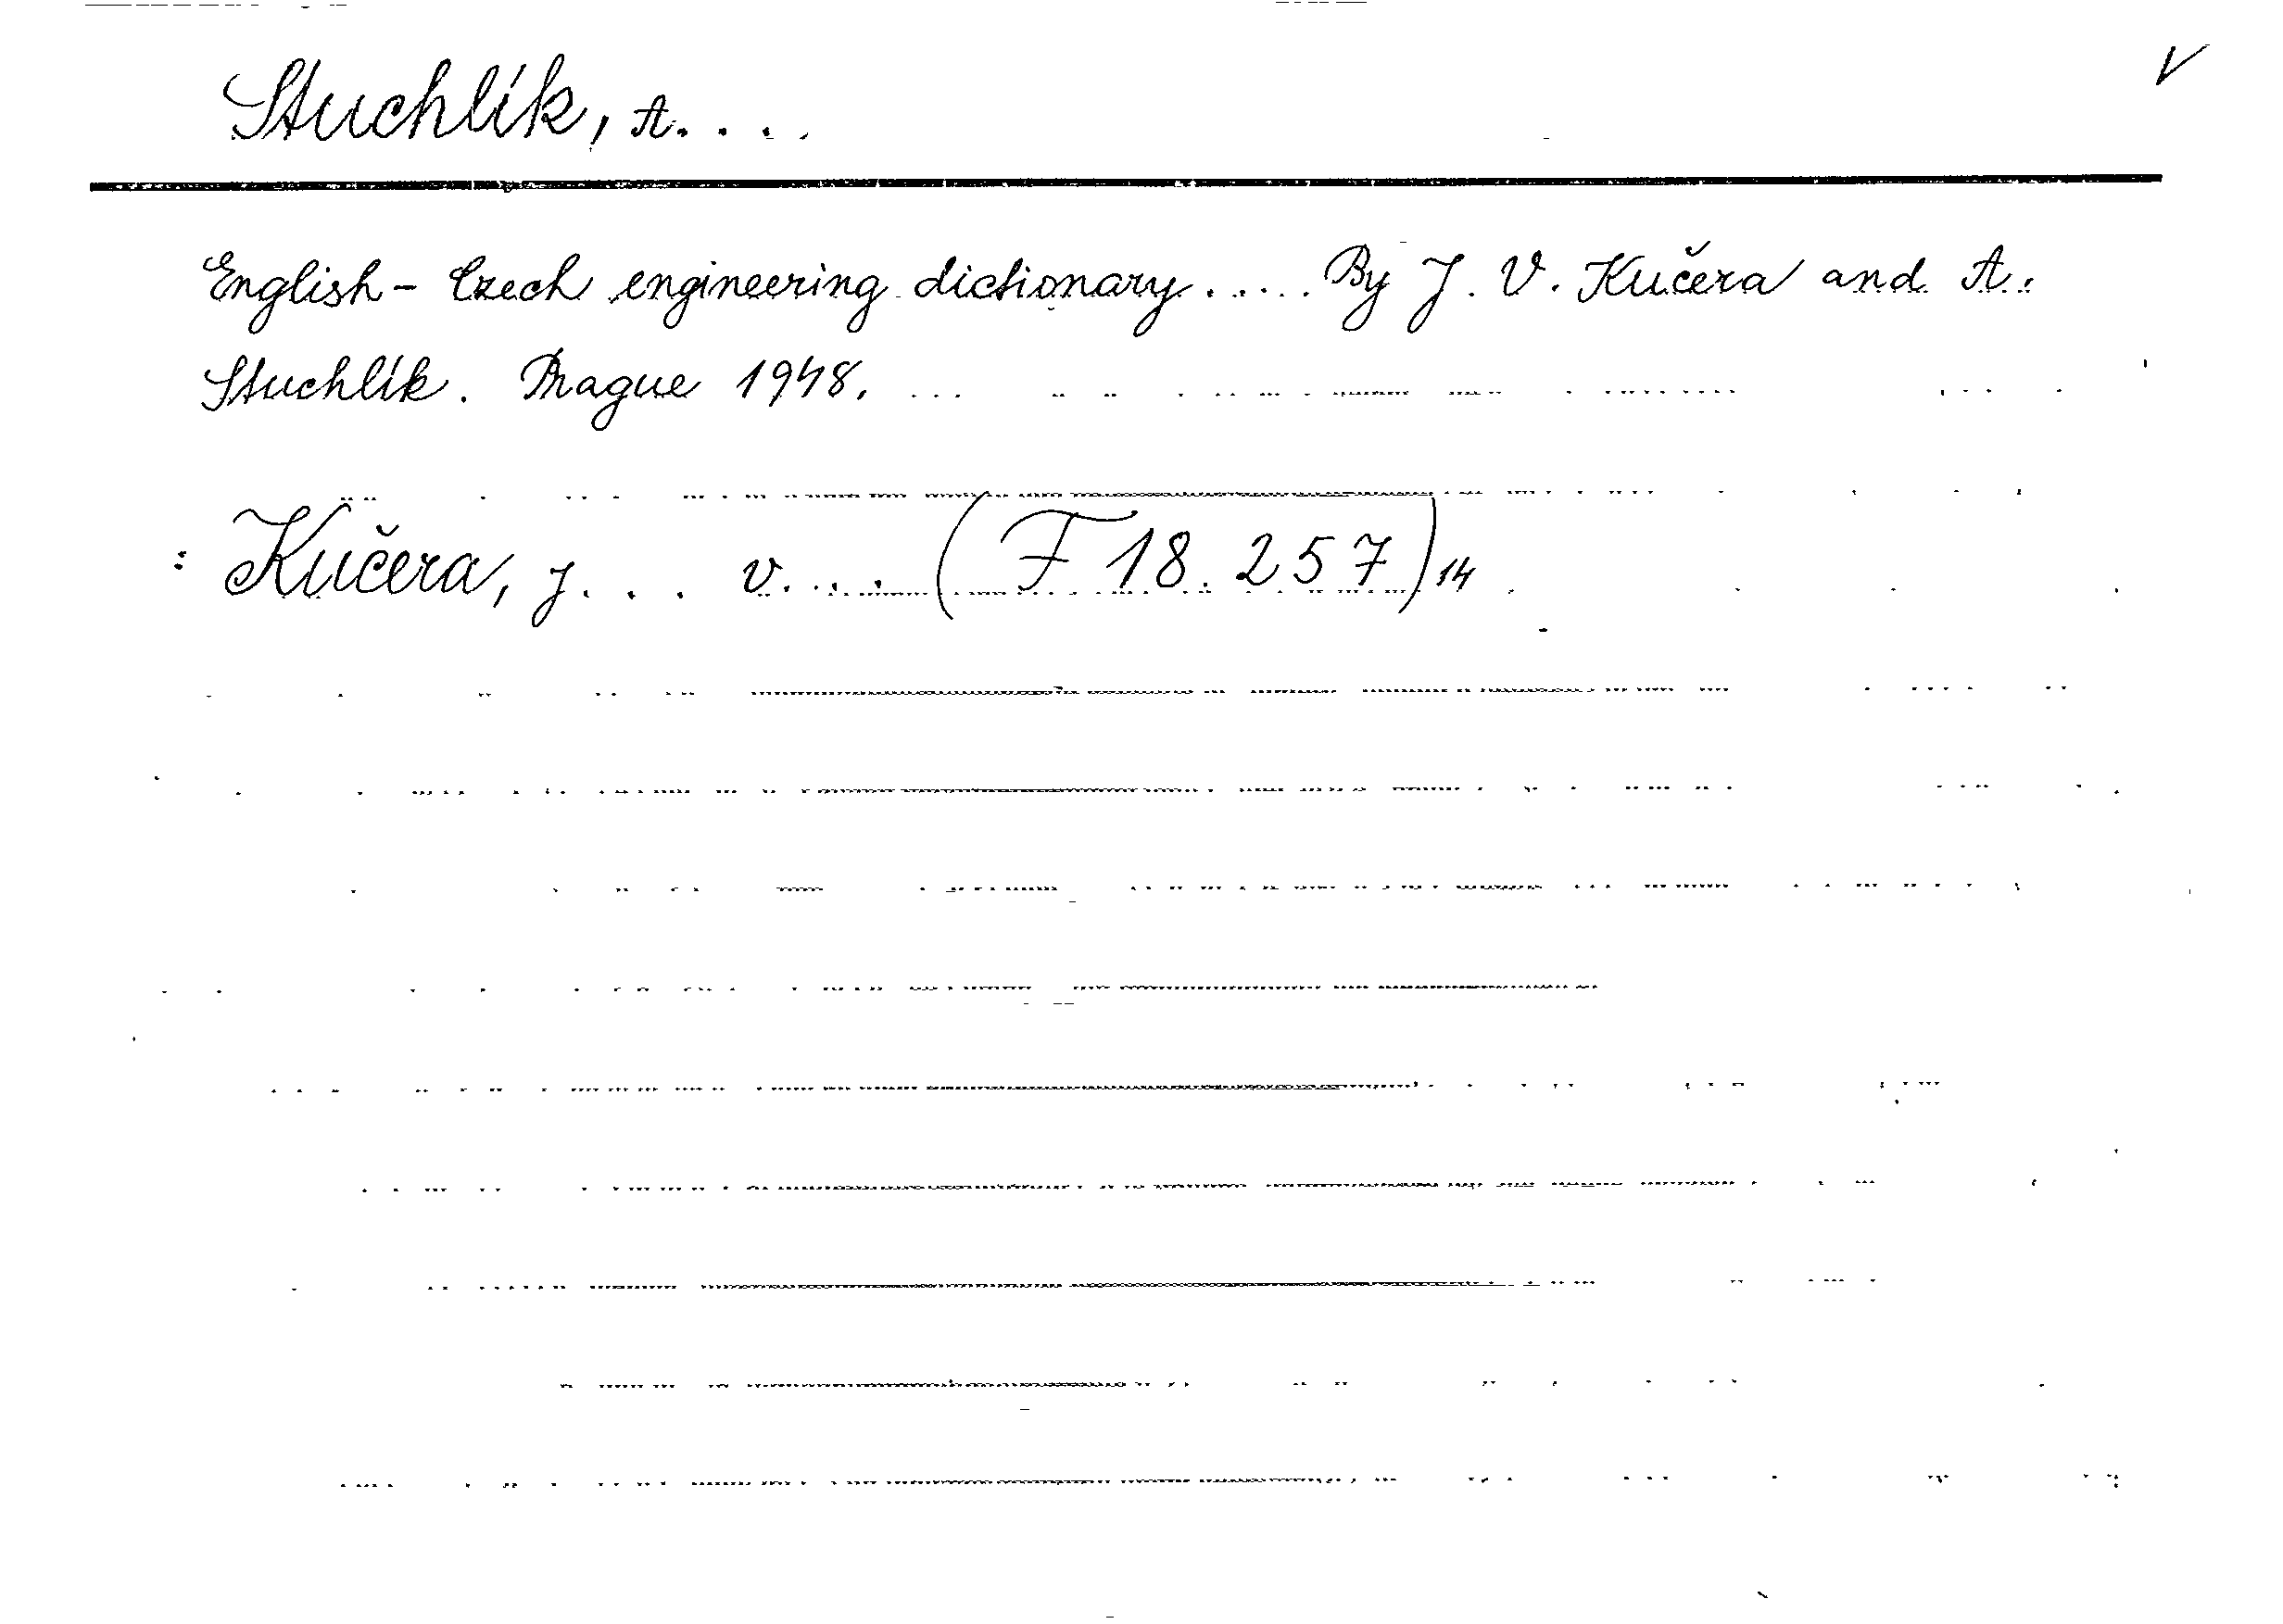 Stuchlík, A. . . .
English - Czech engineering dictionary ..... By J. V. Kučera and A.
Stuchlík. Prague 1948.
: Kučera, J. . . V. . . . (F 18.257) 14